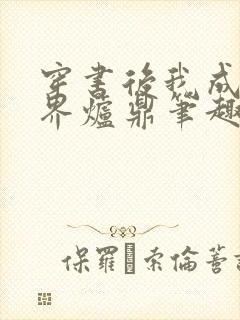 穿书后我成
界爐鼎筆趣
保羅·索倫著